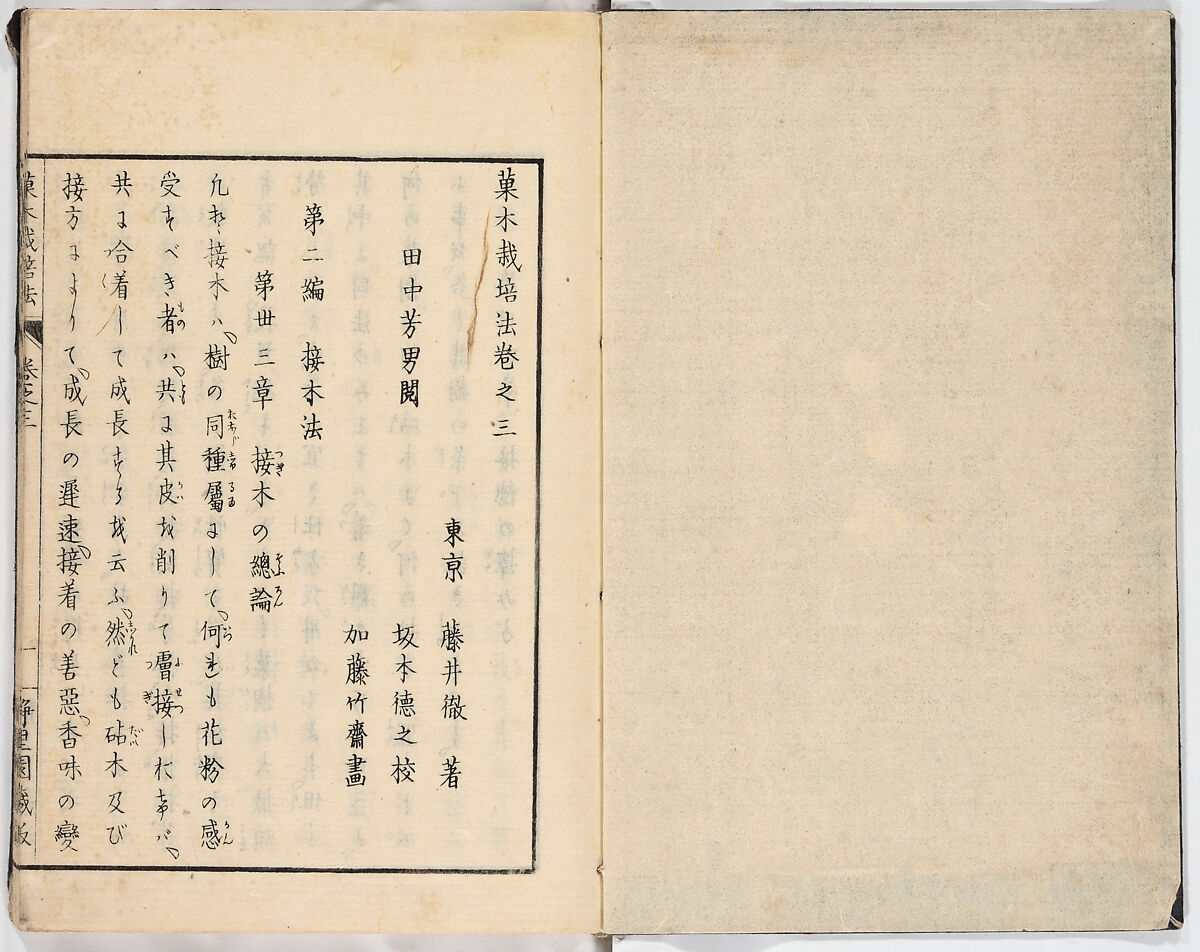 菓木栽培法卷之三
東京 藤井徹 著
田中芳男閲 坂本德之校
加藤竹齋畫
第二編 接木法
第丗三章 接木の總論
凡そ接木ハ、樹の同種屬にして、何れも花粉の感
受すべき者ハ、共に其皮を削りて 接し 事バ、
共に合着して成長するを云ふ、然ども砧木及び
接方によりて、成長の遲速、接着の善惡、香味の變
菓木栽培法 卷之三 一 靜里園藏版